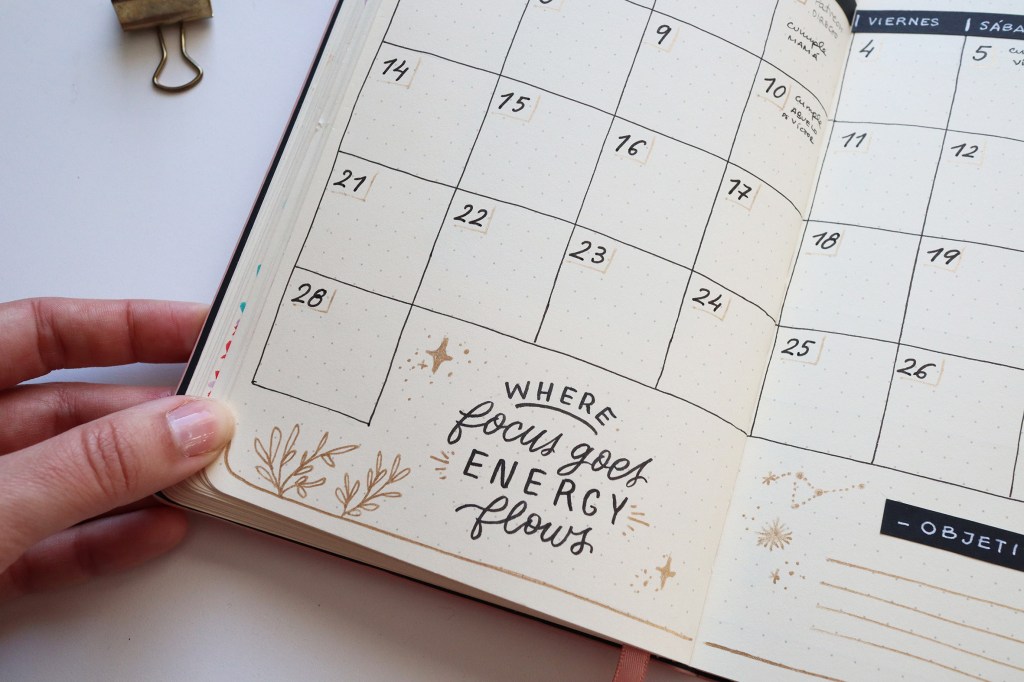 VIERNES SÁBA
9
cumple
MAMÁ
4 5
14 15 16 17
10 cumple
ABUELO
VÍCTOR
11 12
21 22 23 24
18 19
28
25 26
WHERE
focus goes
ENERGY
flows
- OBJETI